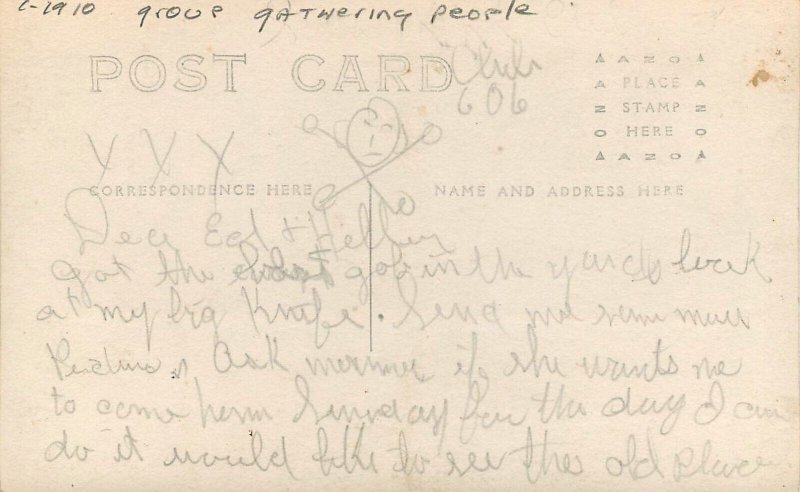 c-1910 group gathering people
POST CARD
606
AZO
PLACE
STAMP
HERE
AZO
CORRESPONDENCE HERE
NAME AND ADDRESS HERE
Dear Ed &
got the job in the yards look
at my big knife. Send me som more
Ask if she wants me
to come hom Sunday for the day I can
do it would like to see the old place